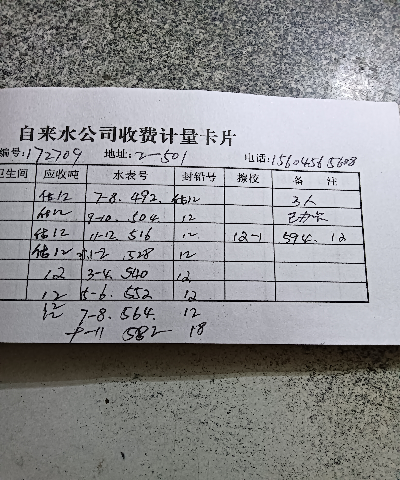 自来水公司收费计量卡片
编号:172709 地址:2-501 电话:15604565608
卫生间 应收吨 水表号 封铅号 换校 备 注
估12 7-8. 492. 估12 3人
估12 9-10. 504. 12
估12 11-12. 516 12 12-1 594. 12
估12 1-2 528 12
12 3-4. 540 12
12 5-6. 552 12
12 7-8. 564. 12
9-11 582 18